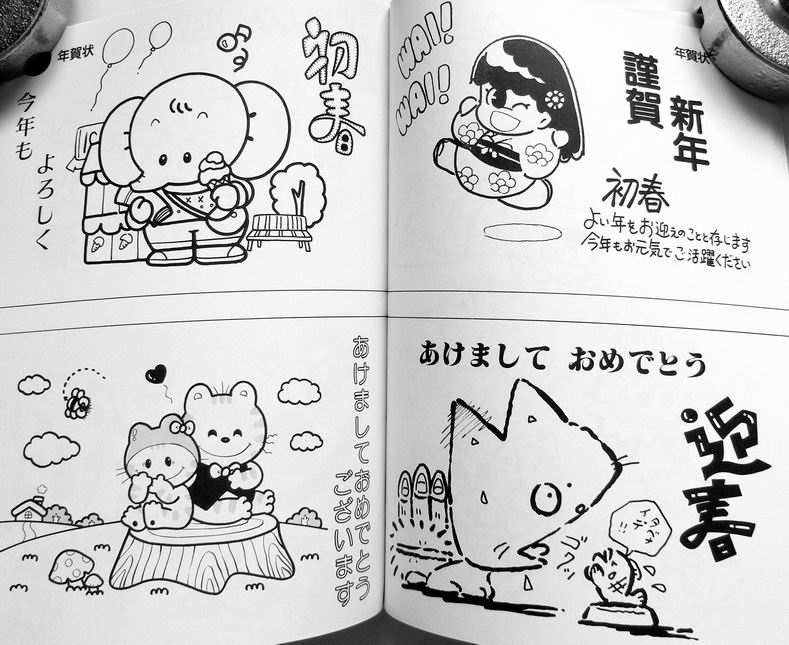 年賀状
初春
今年も
よろしく
年賀状
WAI!
WAI!
謹賀
新年
初春
よい年をお迎えのことと存じます
今年もお元気でご活躍ください
あけましておめでとう
ございます
あけまして おめでとう
迎春